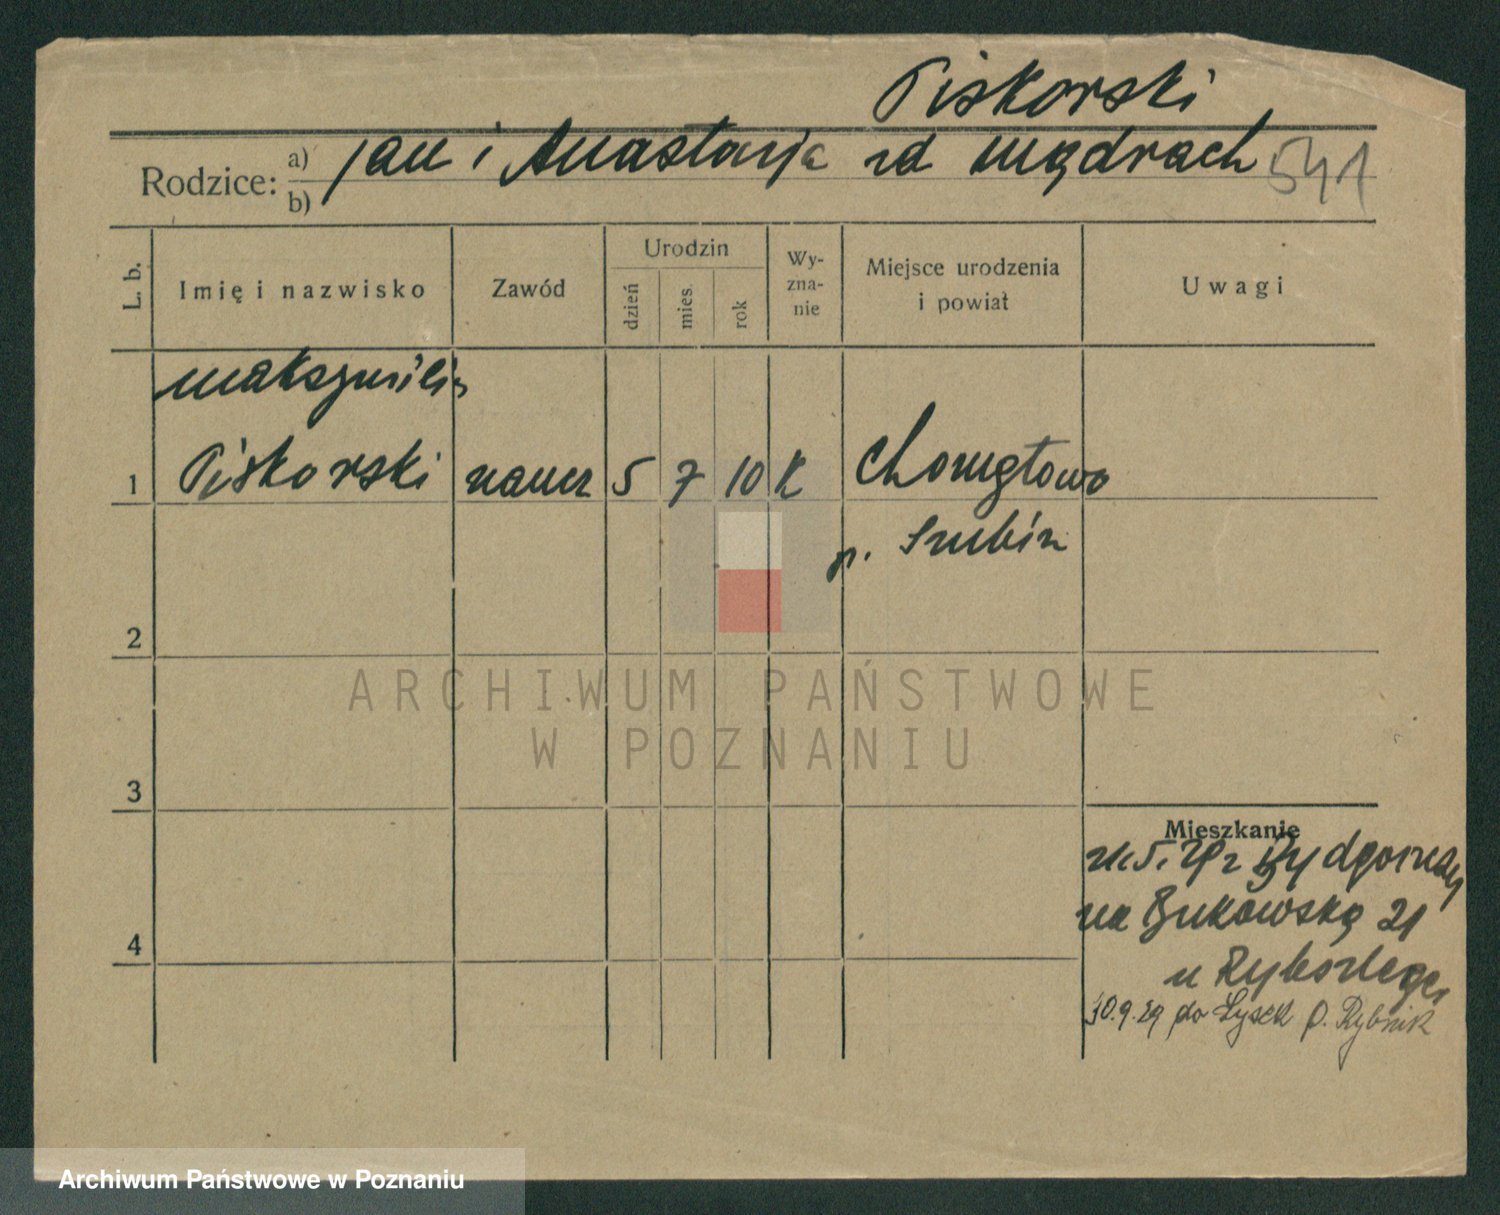 Piskorski
Rodzice: a) Jan i Anastazja zd Mądrach 541
b)
L. b.
Imię i nazwisko
Zawód
Urodzin
dzień
mies.
rok
Wy-
zna-
nie
Miejsce urodzenia
i powiat
Uwagi
Maksymilin
1 Piskorski naucz 5 7 10 K Chomętowo
p. Szubin
2
3
4
Mieszkanie
z Bydgoszczy
na Bukowską 21
u
30.9.29 do Łysek p. Rybnik
ARCHIWUM PAŃSTWOWE
W POZNANIU
Archiwum Państwowe w Poznaniu